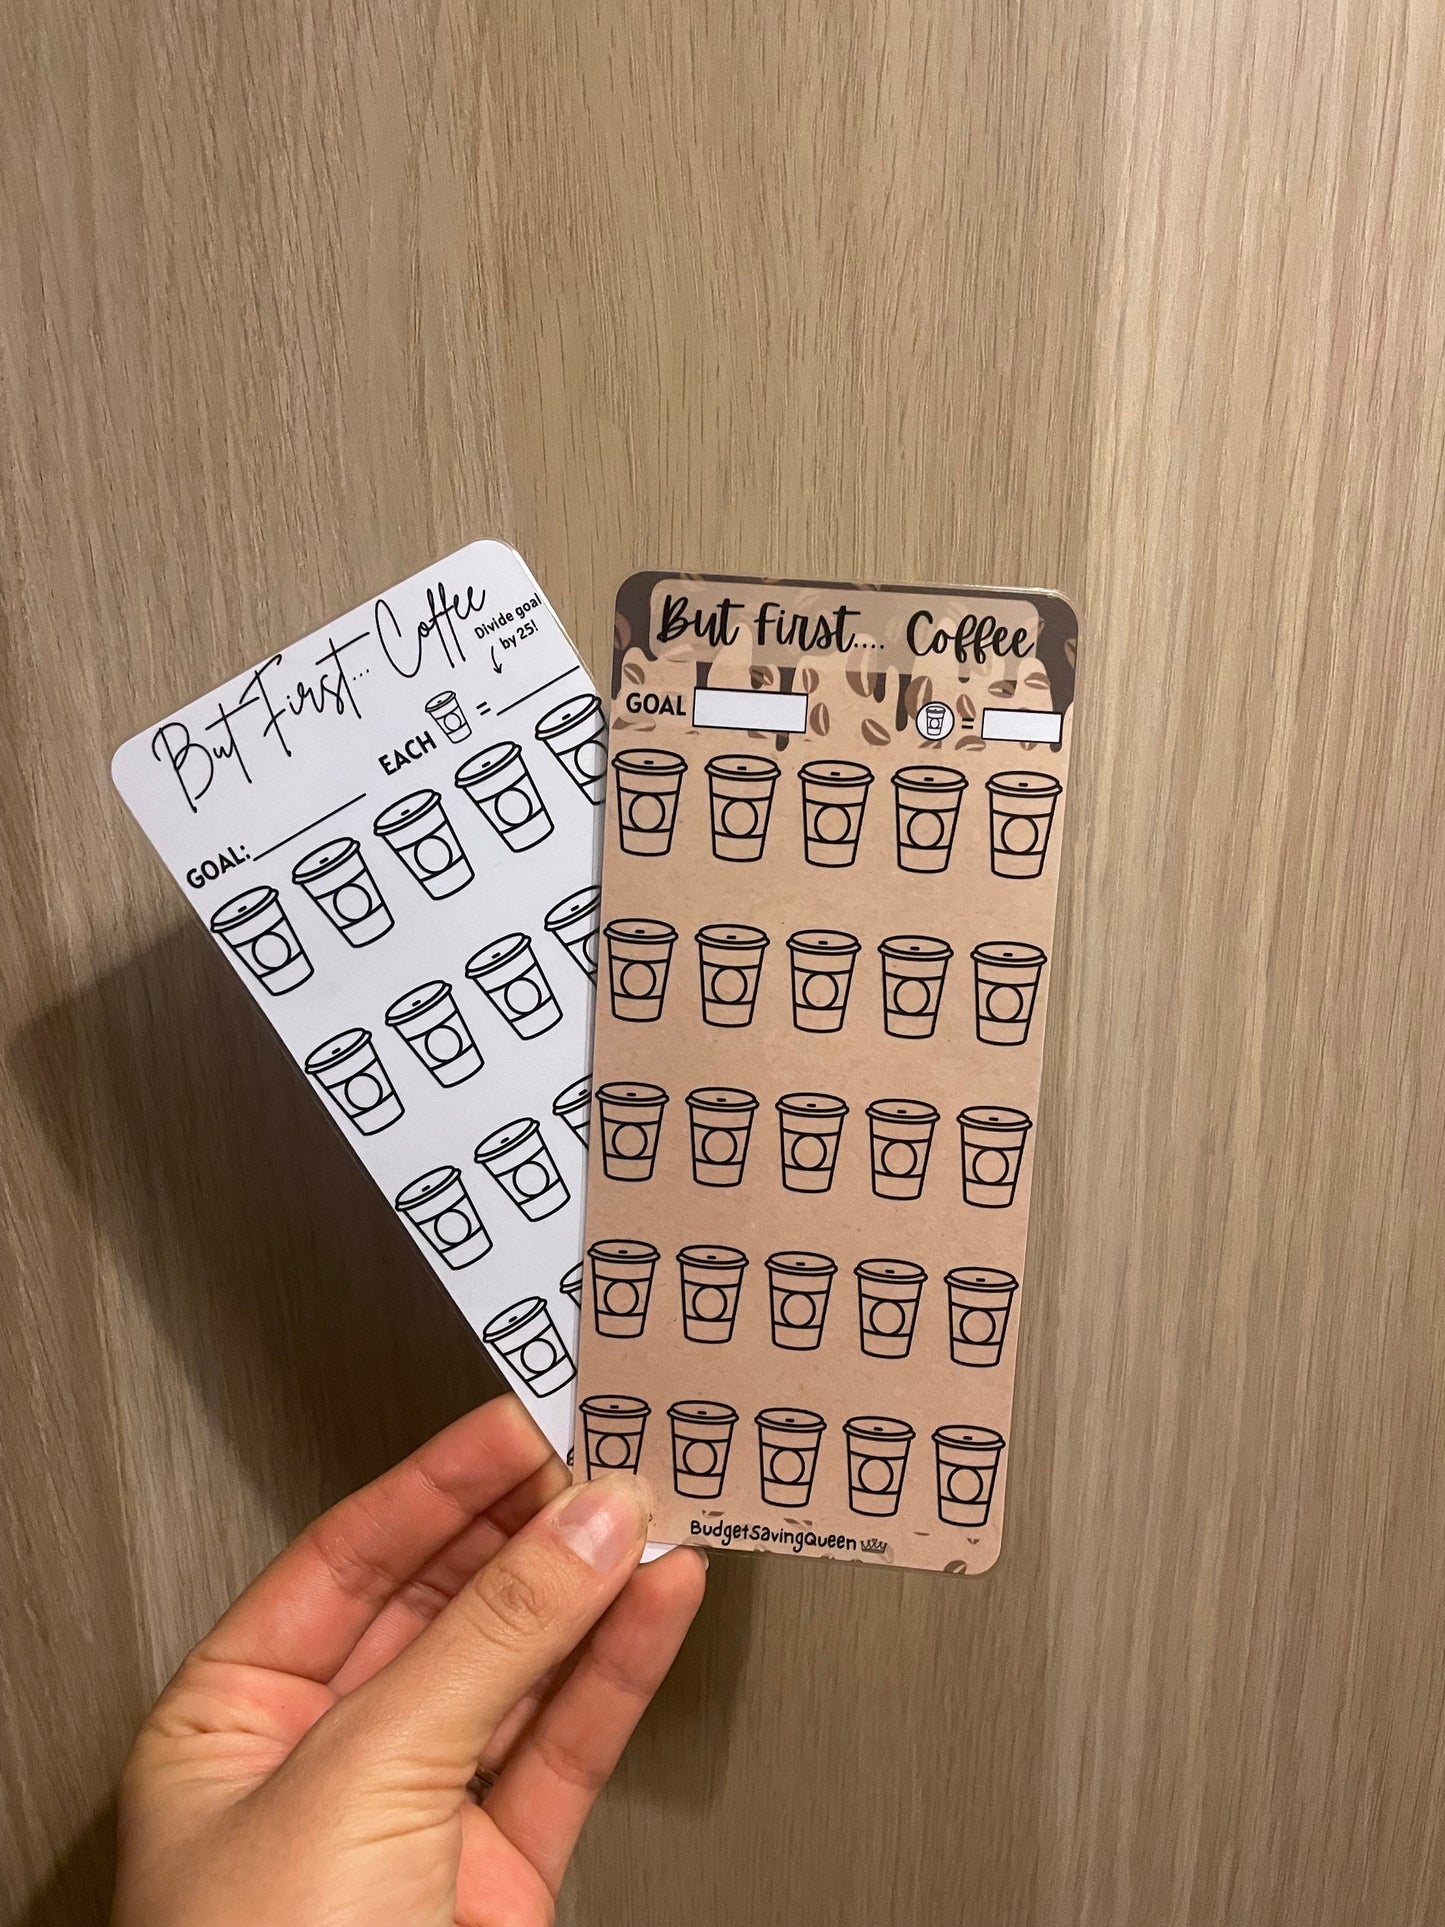 But First... Coffee
Divide goal
by 25!
EACH =
GOAL:
But First.... Coffee
GOAL =
BudgetSavingQueen